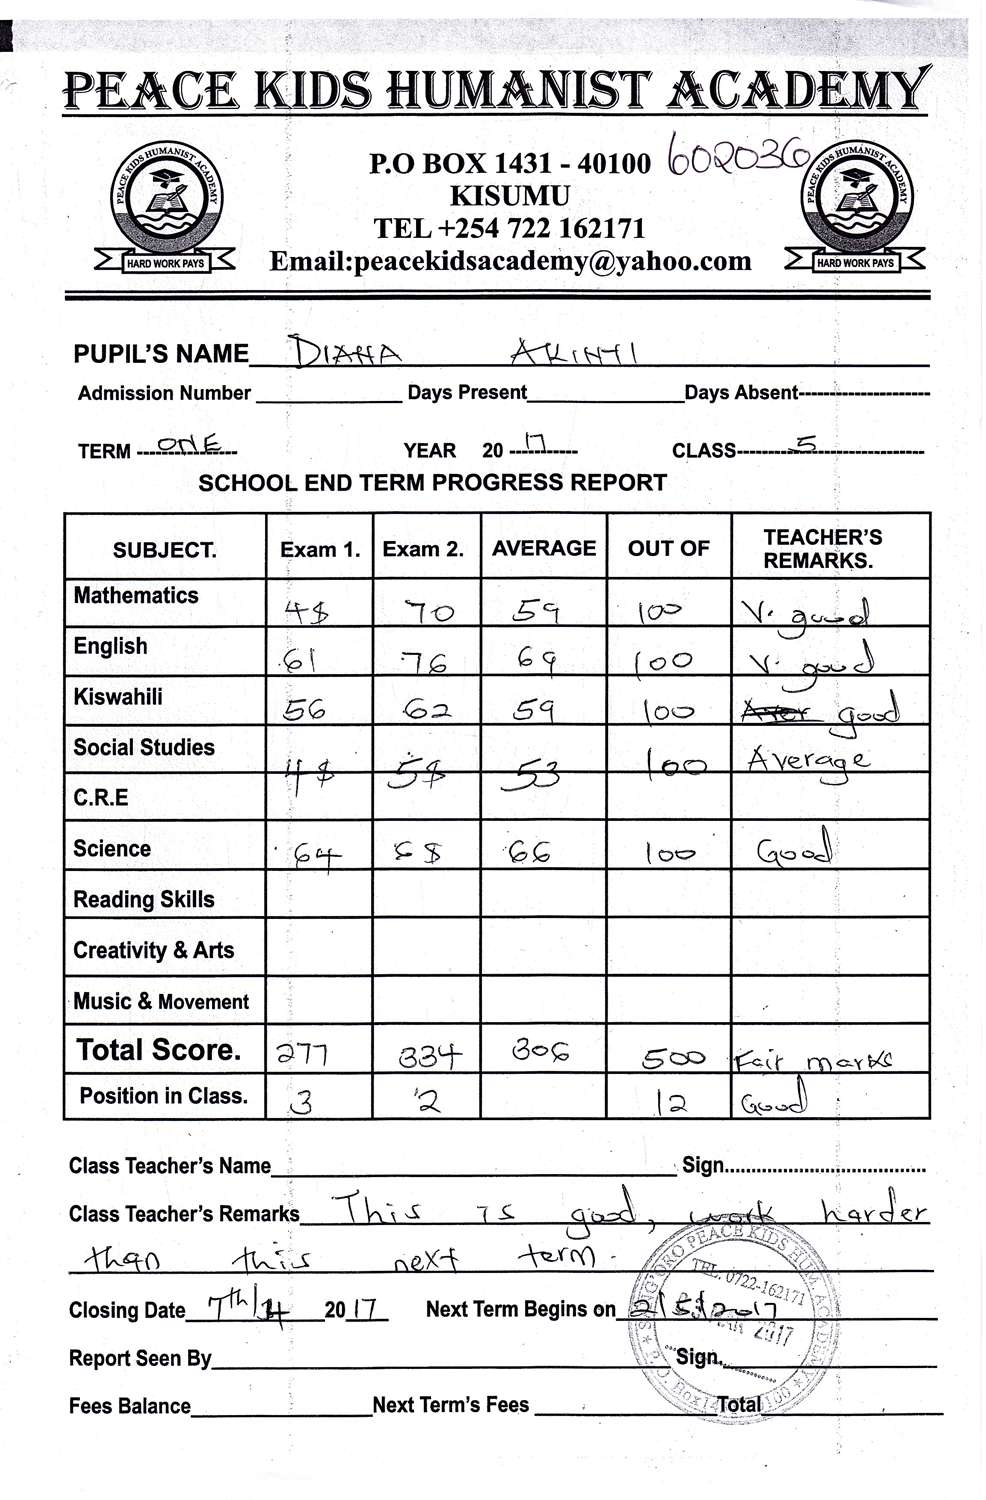 PEACE KIDS HUMANIST ACADEMY
PEACE KIDS HUMANIST ACADEMY
HARD WORK PAYS
P.O BOX 1431 - 40100 602036
KISUMU
TEL +254 722 162171
Email:peacekidsacademy@yahoo.com
PEACE KIDS HUMANIST ACADEMY
HARD WORK PAYS
PUPIL'S NAME DIANA AKINYI
Admission Number Days Present Days Absent
TERM ONE YEAR 20 17 CLASS 5
SCHOOL END TERM PROGRESS REPORT
SUBJECT. Exam 1. Exam 2. AVERAGE OUT OF TEACHER'S REMARKS.
Mathematics 48 70 59 100 V. good
English 61 76 69 100 V. good
Kiswahili 56 62 59 100 good
Social Studies 48 58 53 100 Average
C.R.E
Science 64 68 66 100 Good
Reading Skills
Creativity & Arts
Music & Movement
Total Score. 277 334 306 500 Fair marks
Position in Class. 3 2 12 Good
Class Teacher's Name Sign.
Class Teacher's Remarks This is good, work harder
than this next term.
Closing Date 7th/4 20 17 Next Term Begins on 2/5/2017
Report Seen By Sign.
Fees Balance Next Term's Fees Total
PEACE KIDS HUM. ACADEMY
TEL: 0722-162171
2017